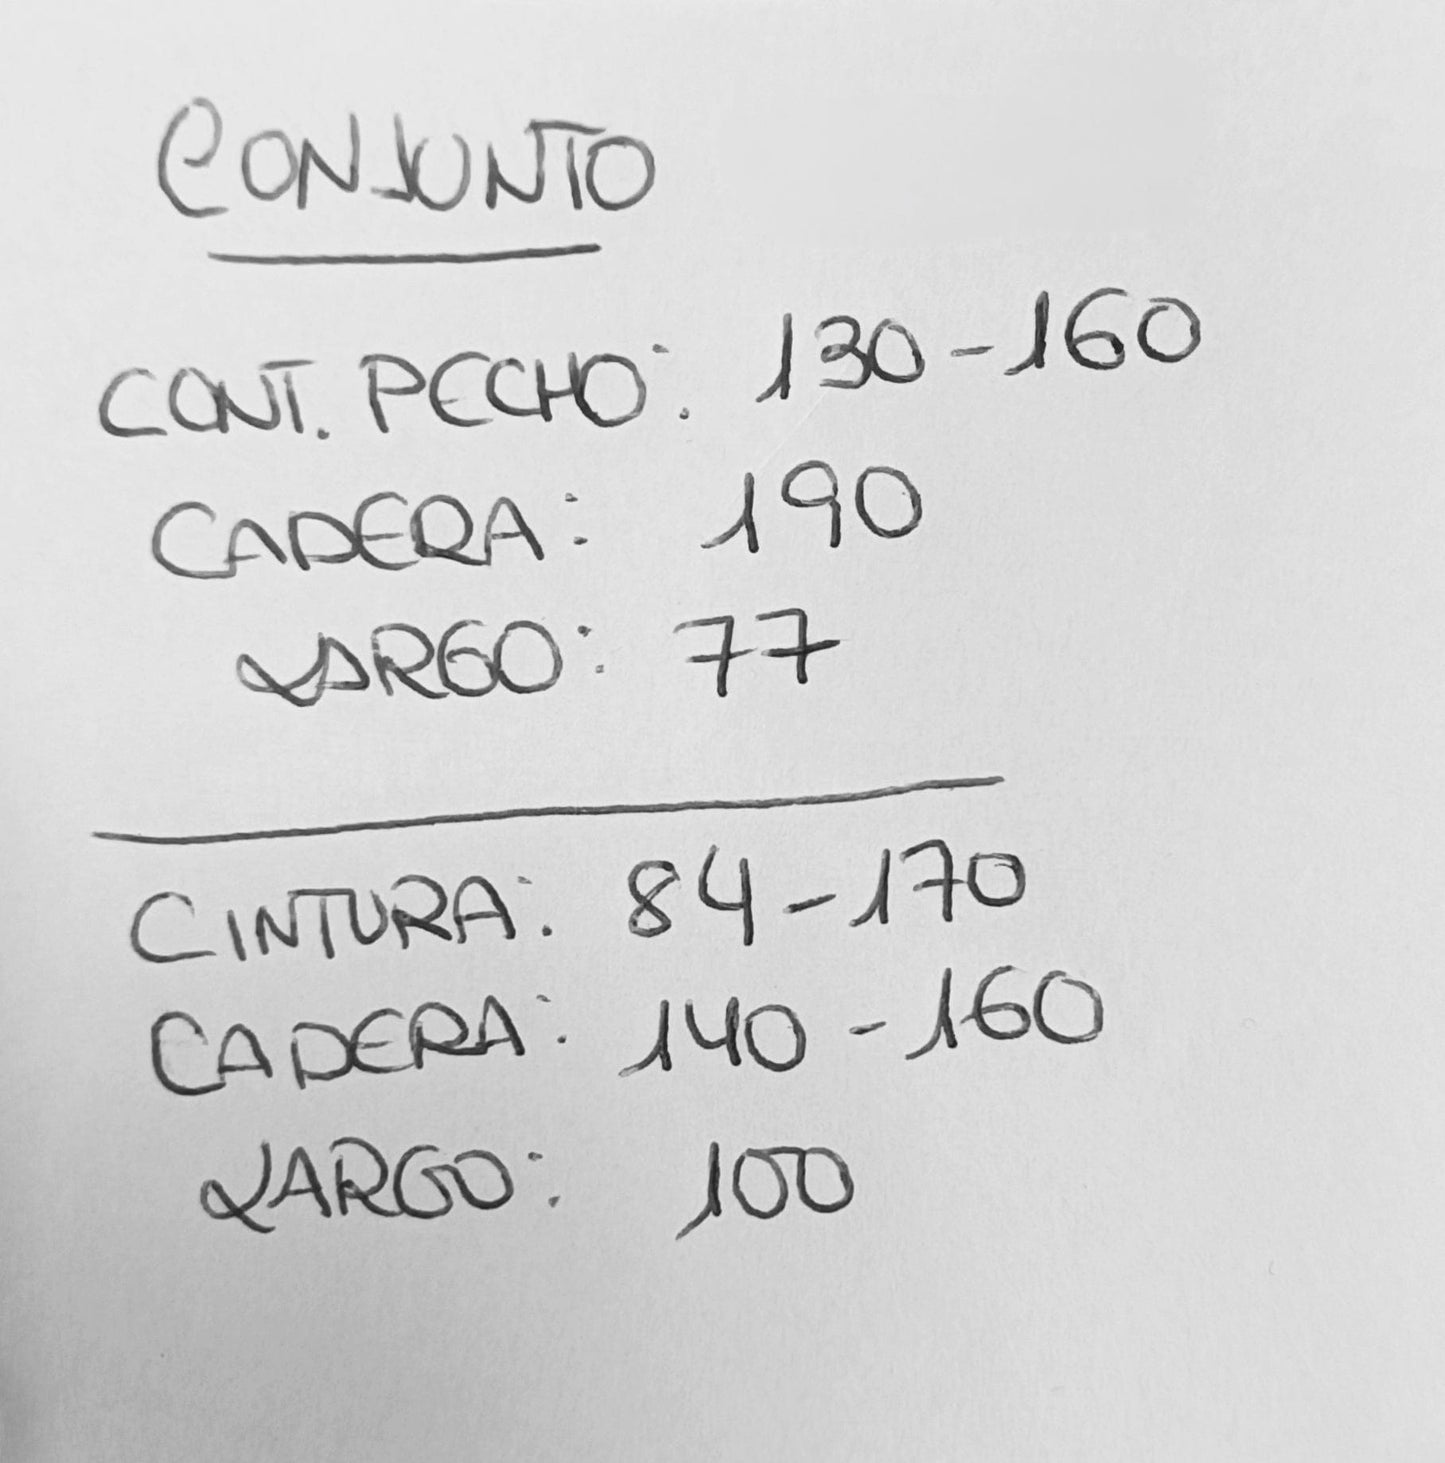 CONJUNTO
CONT. PECHO: 130-160
CADERA: 190
LARGO: 77
CINTURA: 84-170
CADERA: 140-160
LARGO: 100